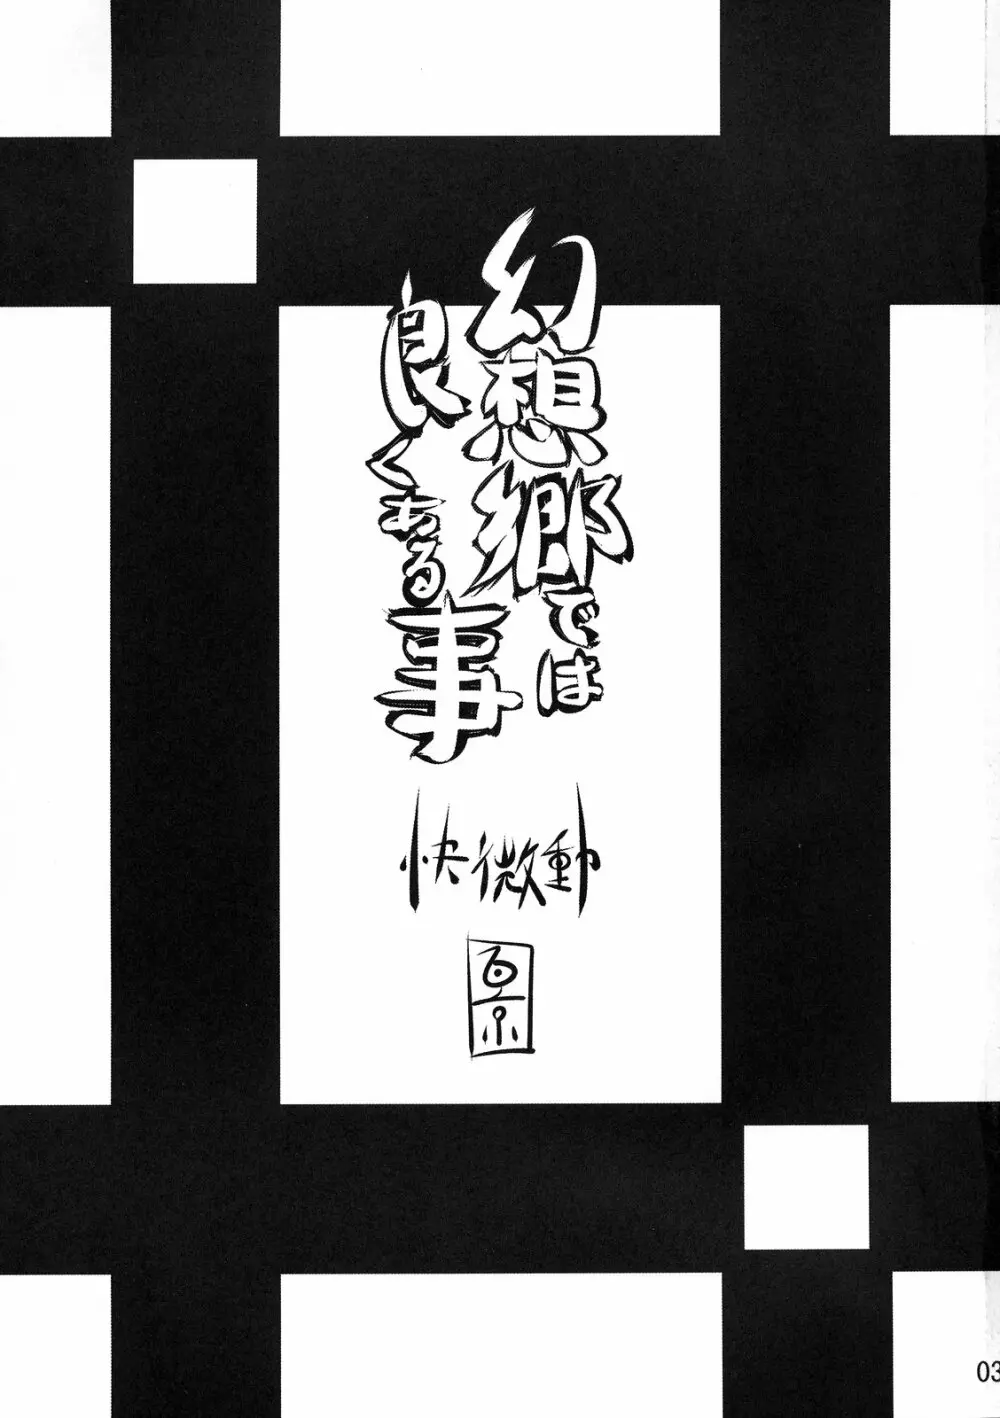 幻想郷では
良くある事
快微動
景
03